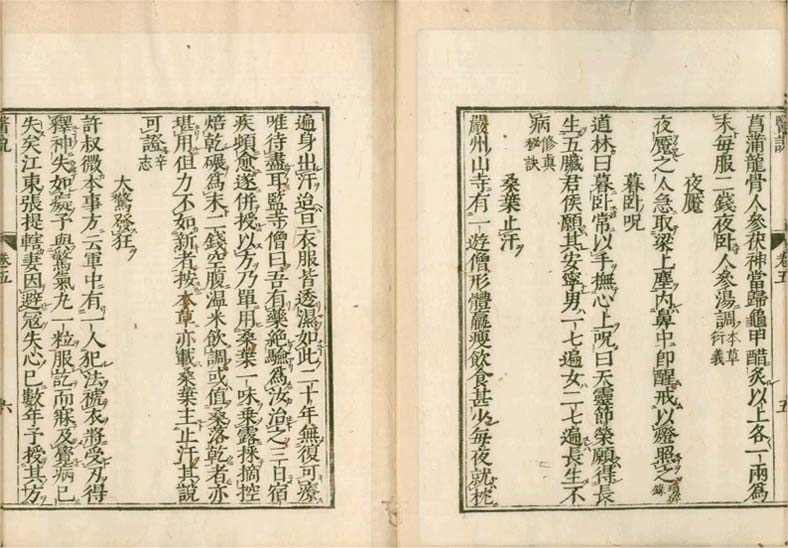 醫說
卷五
五
菖蒲龍骨人參茯神當歸龜甲醋炙以上各一兩為
末每服二錢夜臥人參湯調本草衍義
夜魘
夜魘之人急取梁上塵内鼻中即醒戒以燈照之瑣碎錄
暮臥呪
道林曰暮臥常以手撫心上呪曰天靈節榮願得長
生五臟君侯願其安寧男一七遍女二七遍長生不
病修真秘訣
桑葉止汗
嚴州山寺有一遊僧形體羸瘦飲食甚少每夜就枕
遍身出汗迨旦衣服皆透濕如此二十年無復可療
唯待盡耳監寺僧曰吾有藥絶驗為汝治之三日宿
疾頓愈遂併授以方乃單用桑葉一味乗露採摘控
焙乾碾為末二錢空腹温米飲調或值桑落乾者亦
堪用但力不如新者按本草亦載桑葉主止汗其說
可證辛志
大驚發狂
許叔微本事方云軍中有一人犯法褫衣將受刃得
釋神失如癡予與驚氣丸一粒服訖而寐及覺病已
失矣江東張提轄妻因避冦失心已數年予授其方
醫說
卷五
六